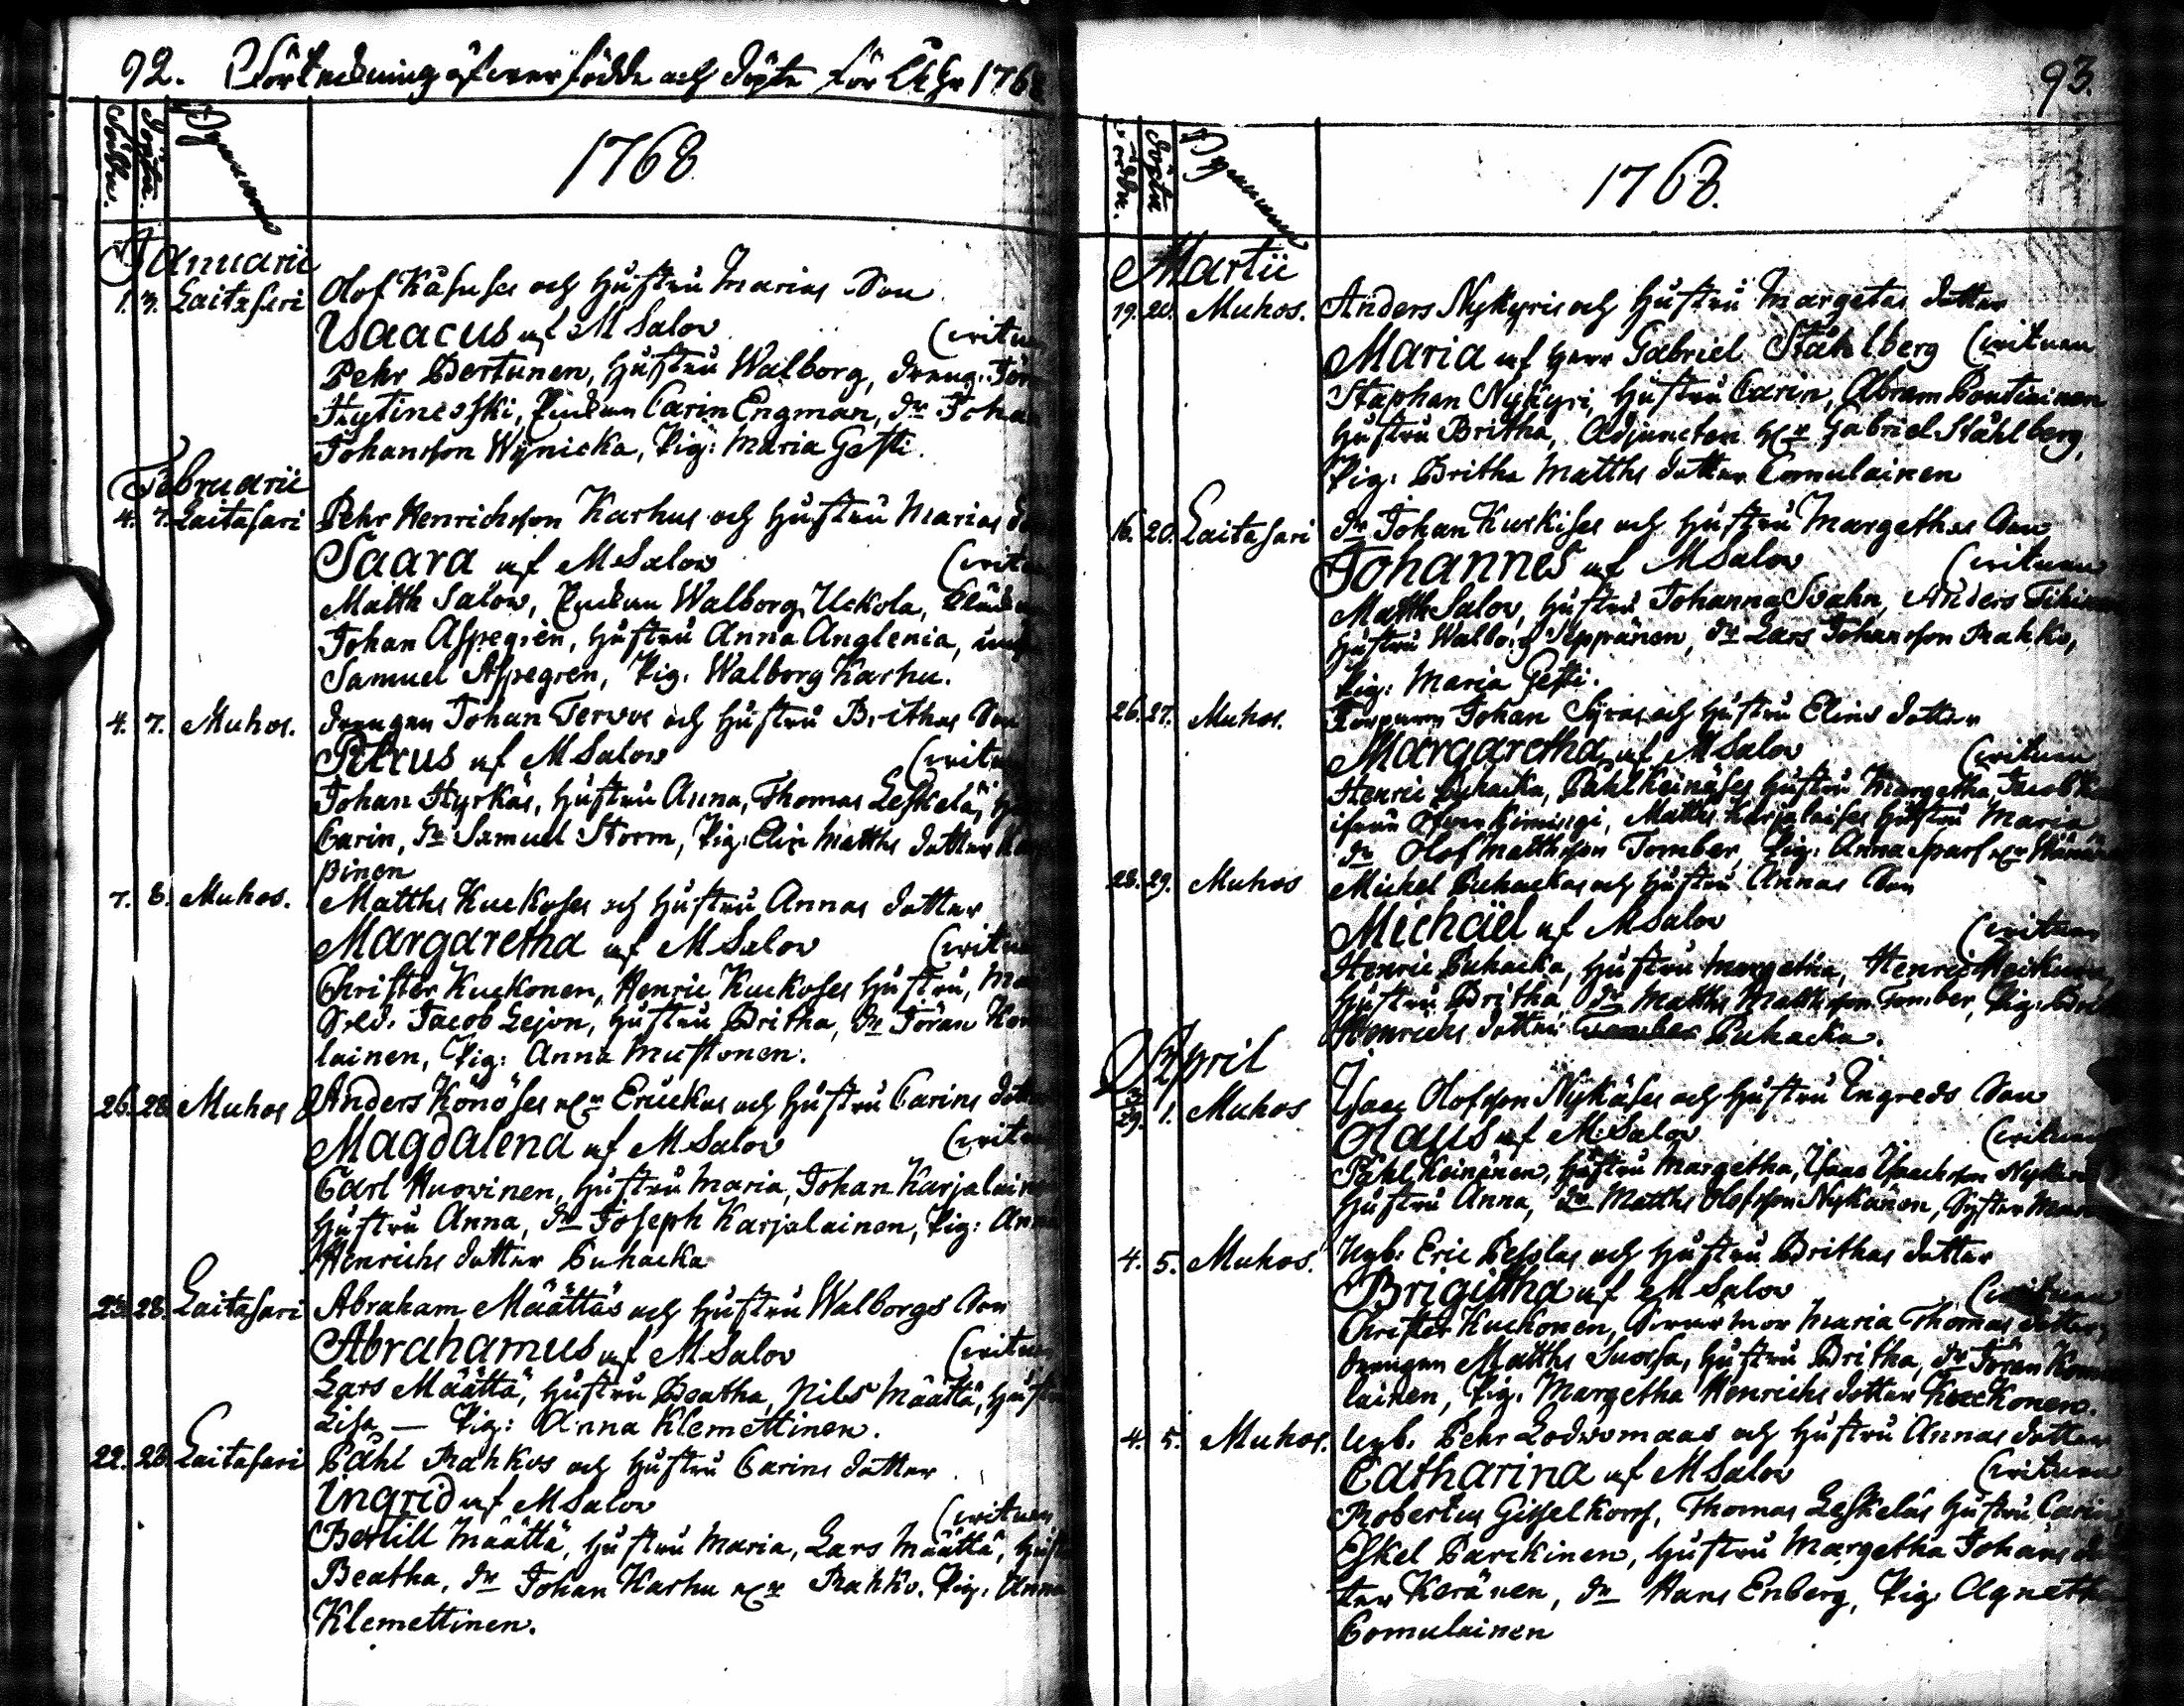 92. Förteckning öfwer födde och döpte för Åhr 1768
Födde. Döpte. Byarne
1768
Januarii
1. 3. Laitasari Olof Kåsuses och Hustru Marias Son
Isaacus af M Salov (Critum
Pehr Bertunen, Hustru Walborg, dreng. Jör
Hytinesski, Pigan Carin Engman, dr Johan
Johansson Wynicka, Pig: Maria Gesti.
Februarii
4. 7. Laitasari Pehr Henrichsson Karhus och Hustru Marias
Saara af M Salov
Matth Salow, Walborg Uckola,
Johan Aspegrén, Hustru Anna Anglenia,
Samuel Aspegren, Pig. Walborg Karhu.
4. 7. Muhos. drengen Johan Tervos och Hustru Brithas Son
Petrus af M Salow
Johan Hyrkäs, Hustru Anna, Thomas Leskelä,
Carin, dr Samuel Storm, Pig: Elin Matths dotter
pinen
7. 8. Muhos. Matths Kuckoses och Hustru Annas dotter
Margaretha af M Salov
Christer Kuckonen, Henric Kuckoses Hustru,
Sold. Jacob Lejon, Hustru Britha, dr Jöran
lainen, Pig: Anna Mustonen.
26. 28. Muhos Anders Könöses Eruckas och Hustru Carins
Magdalena af M Salov
Carl Huovinen, Hustru Maria, Johan Karjalainen
Hustru Anna, dr Joseph Karjalainen, Pig: Anna
Henrichs dotter Puhacka
25. 28. Laitasari Abraham Määttäs och Hustru Walborgs Son
Abrahamus af M Salov
Lars Määttä, Hustru Beatha, Nils Määttä, Hustru
Lisa — Pig: Anna Klemettinen.
22. 28. Laitasari Påhl Rahkos och Hustru Carins dotter
Ingrid af M Salov
Bertill Määttä, Hustru Maria, Lars Määttä,
Beatha, dr Johan Karhu Rahko. Pig. Anna
Klemettinen.
93.
Födde. Döpte Byarne
1768.
Martii
19. 20. Muhos. Anders Nykyris och Hustru Margetas dotter
Maria af Herr Gabriel Ståhlberg
Staphan Nykyri, Hustru Carin, Abram Pontiainen
Hustru Britha, Adjuncten Hr Gabriel Ståhlberg,
Pig. Britha Matths dotter Comulainen
16. 20. Laitasari dr Johan Kurkises och Hustru Margethas Son
Johannes af M Salov
Matth Salov, Hustru Johanna Svahn, Anders
Hustru Walborg Seppänen, dr Lars Johansson Rahko,
Pig: Maria Gesti.
26. 27. Muhos. Torparn Johan Syras och Hustru Elins dotter
Margaretha af M Salov
Henric Puhacka, Påhl Keinäses Hustru Margetha, Jacob
Matths Karjalaises Hustru Maria
dr Olof Matthsson Tomber, Pig: Anna
28. 29. Muhos Michel Puhackas och Hustru Annas Son
Michäel af M Salov
Henric Puhacka, Hustru Margetha, Henric
Hustru Britha, dr Matths Matthsson Tomber, Pig.
Henrichs dotter Puhacka.
April
29. 1. Muhos Isaac Olofsson Nykäses och Hustru Ingreds Son
Olaus af M: Salov
Påhl Keinänen, Hustru Margetha, Isaac Isaacksson
Hustru Anna, dr Matths Olofsson Nykänen, Syster
4. 5. Muhos. Nyb: Eric Pesolas och Hustru Brithas dotter
Brigitha af M Salov
Christer Kuckonen, Maria Thomas dotter,
drengen Matths Suossa, Hustru Britha, dr Jöran
lainen, Pig. Margetha Henrichs dotter Kuckonen.
4. 5. Muhos. Nyb. Pehr Lodwomaas och Hustru Annas dotter
Catharina af M Salov
Robertus Gisselkors, Thomas Leskeläs Hustru Carin
Eskel Parckinen, Hustru Margetha Johans dot
ter Keränen, dr Hans Enberg, Pig: Agnetha
Comulainen